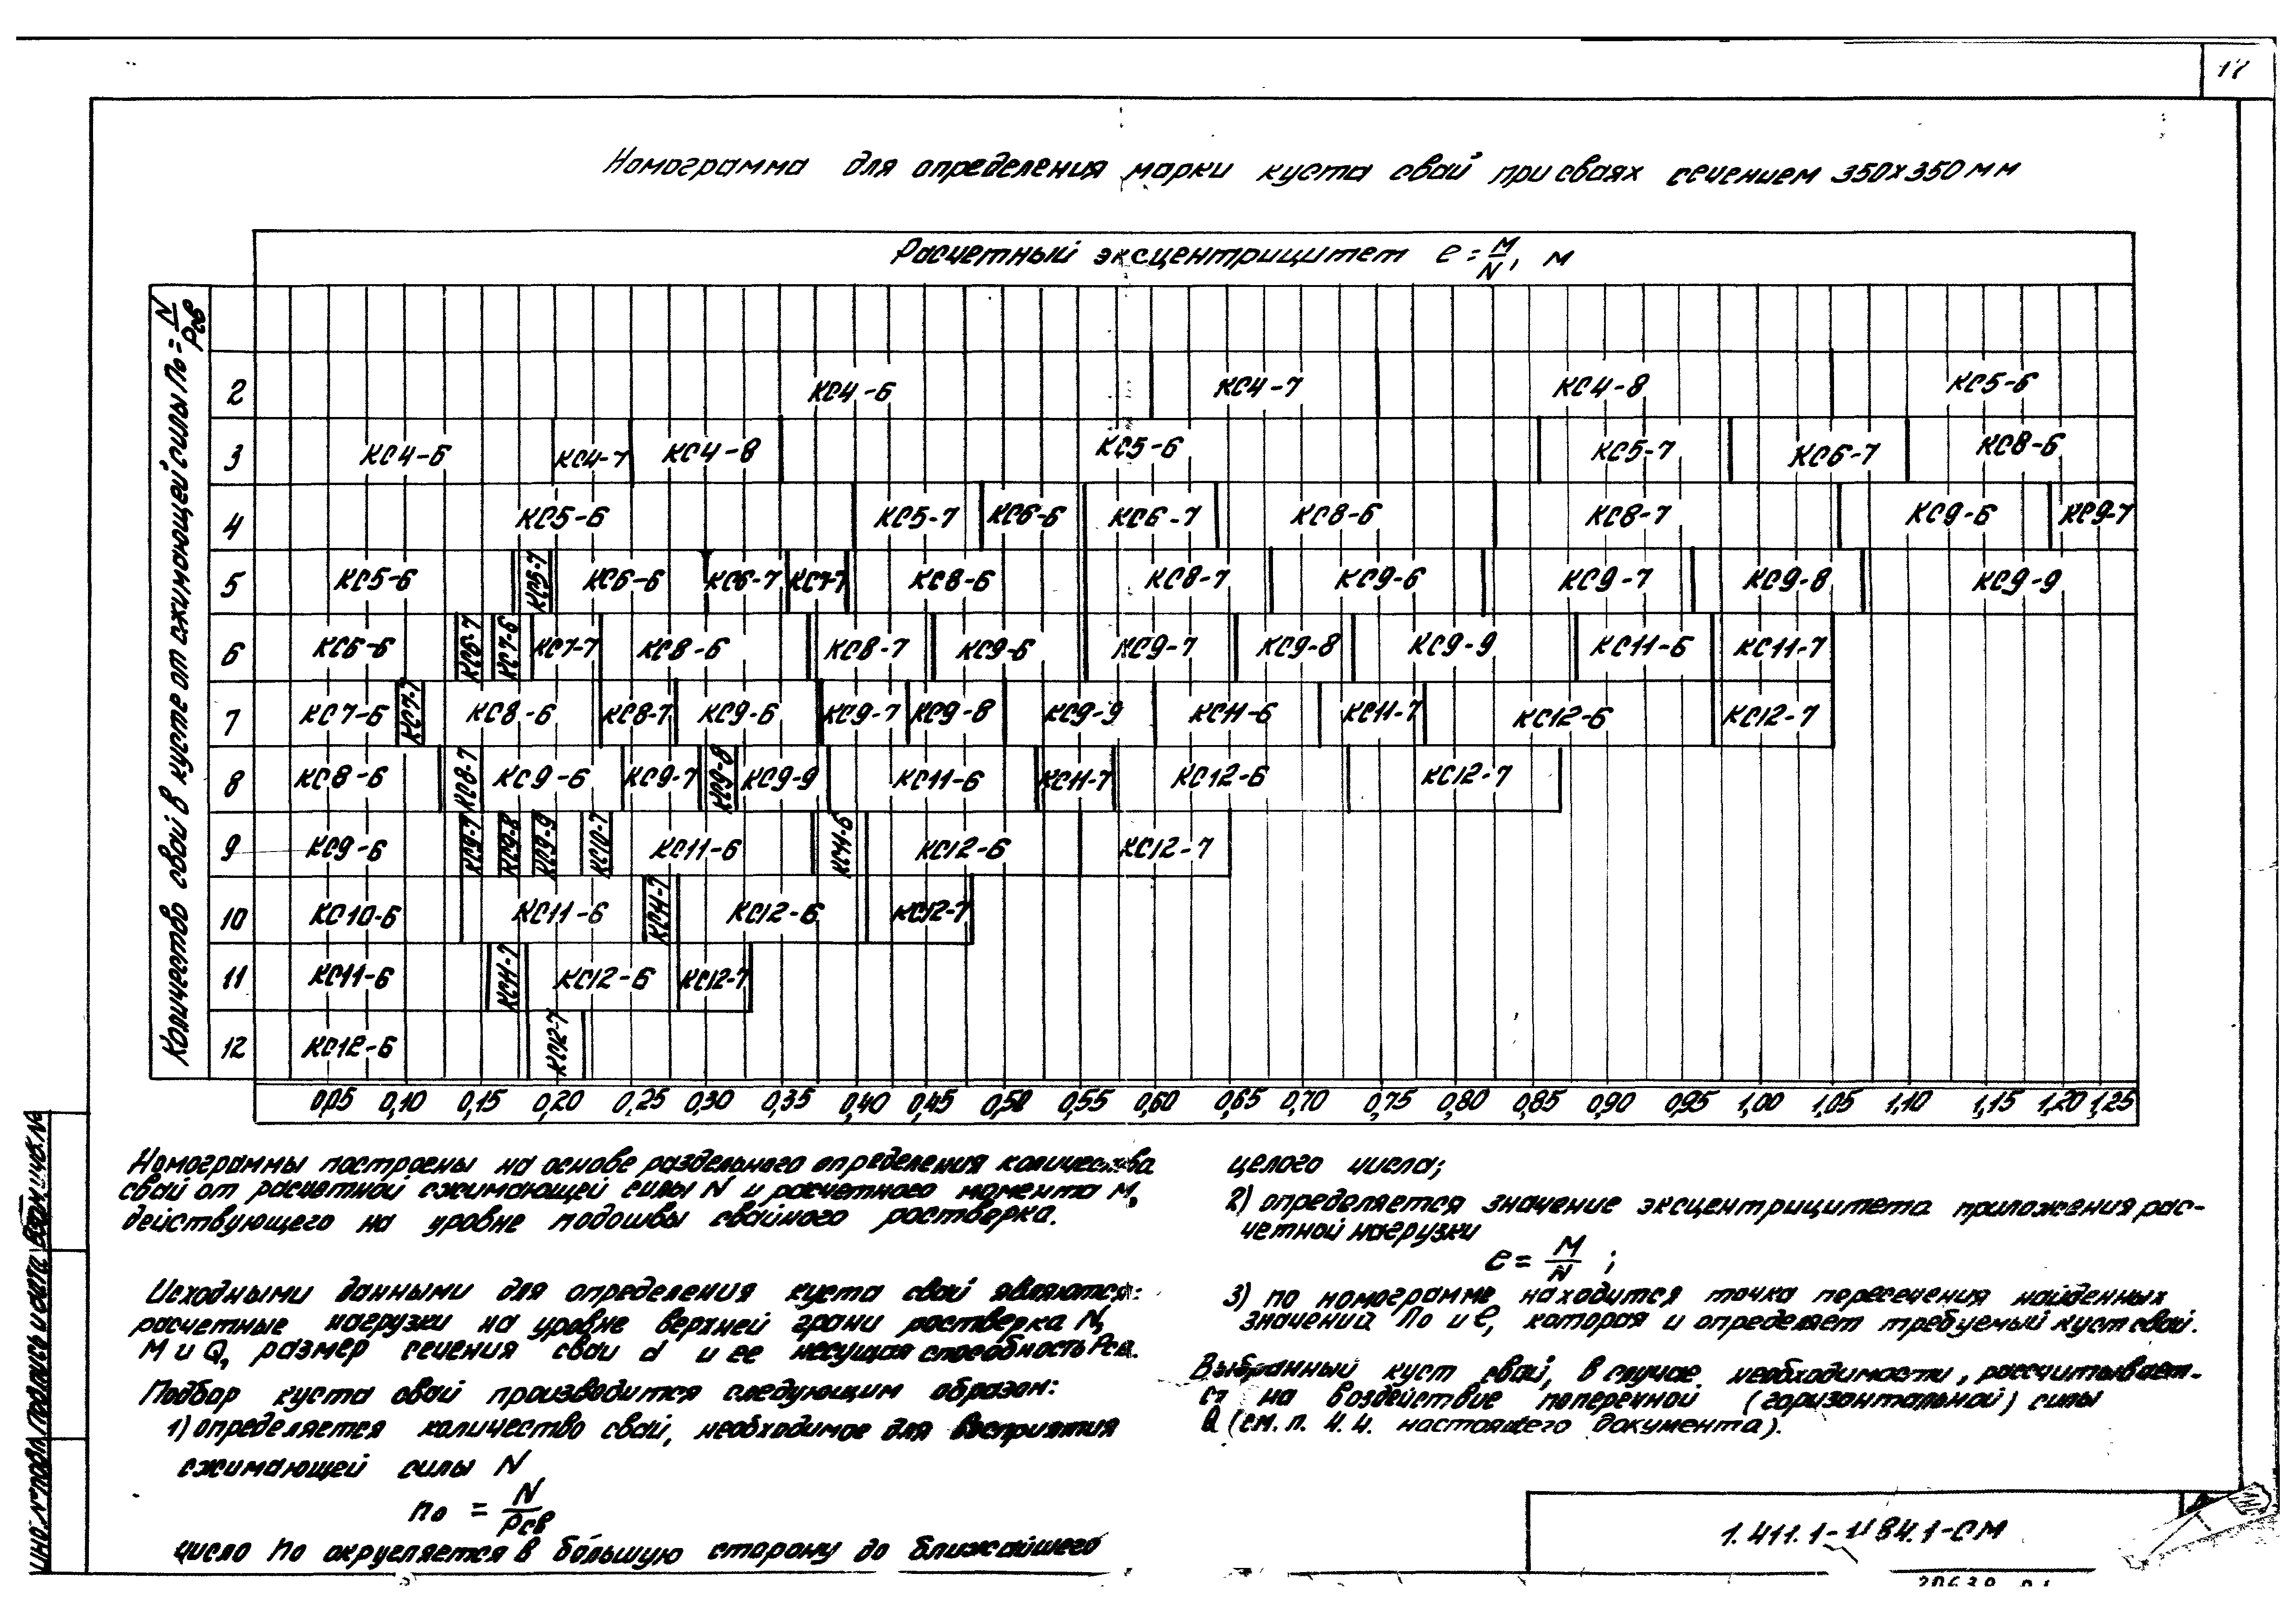 17
Номограмма для определения марки куста свай при сваях сечением 350х350 мм
Расчетный эксцентрицитет e = M/N, м
Количество свай в кусте от сжимающей силы По = N/Рсв
2 КС4-6 КС4-7 КС4-8 КС5-6
3 КС4-6 КС4-7 КС4-8 КС5-6 КС5-7 КС6-7 КС8-6
4 КС5-6 КС5-7 КС6-6 КС6-7 КС8-6 КС8-7 КС9-6 КС9-7
5 КС5-6 КС5-7 КС6-6 КС6-7 КС7-7 КС8-6 КС8-7 КС9-6 КС9-7 КС9-8 КС9-9
6 КС6-6 КС6-7 КС7-6 КС7-7 КС8-6 КС8-7 КС9-6 КС9-7 КС9-8 КС9-9 КС11-6 КС11-7
7 КС7-6 КС7-7 КС8-6 КС8-7 КС9-6 КС9-7 КС9-8 КС9-9 КС11-6 КС11-7 КС12-6 КС12-7
8 КС8-6 КС8-7 КС9-6 КС9-7 КС9-8 КС9-9 КС11-6 КС11-7 КС12-6 КС12-7
9 КС9-6 КС9-7 КС9-8 КС9-9 КС10-7 КС11-6 КС11-6 КС12-6 КС12-7
10 КС10-6 КС11-6 КС11-7 КС12-6 КС12-7
11 КС11-6 КС11-7 КС12-6 КС12-7
12 КС12-6 КС12-7
0,05 0,10 0,15 0,20 0,25 0,30 0,35 0,40 0,45 0,50 0,55 0,60 0,65 0,70 0,75 0,80 0,85 0,90 0,95 1,00 1,05 1,10 1,15 1,20 1,25
Номограммы построены на основе раздельного определения количества
свай от расчетной сжимающей силы N и расчетного момента M,
действующего на уровне подошвы свайного ростверка.
Исходными данными для определения куста свай являются:
расчетные нагрузки на уровне верхней грани ростверка N,
M и Q, размер сечения сваи d и ее несущая способность Рсв.
Подбор куста свай производится следующим образом:
1) определяется количество свай, необходимое для восприятия
сжимающей силы N
n₀ = N/Рсв
число n₀ округляется в большую сторону до ближайшего
целого числа;
2) определяется значение эксцентрицитета приложения рас-
четной нагрузки
e = M/N ;
3) по номограмме находится точка пересечения найденных
значений n₀ и e, которая и определяет требуемый куст свай.
Выбранный куст свай, в случае необходимости, рассчитывает-
ся на воздействие поперечной (горизонтальной) силы
Q (см. п. 4.4. настоящего документа).
Инв.№ подл. Подпись и дата Взам.инв.№
1.411.1-1/84.1-СМ